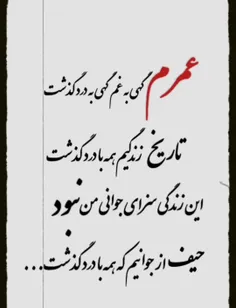 عمرم گهی به غم گهی به درد گذشت
تاریخ زندگیم همه با درد گذشت
این زندگی سزای جوانی من نبود
حیف از جوانیم که همه با درد گذشت...